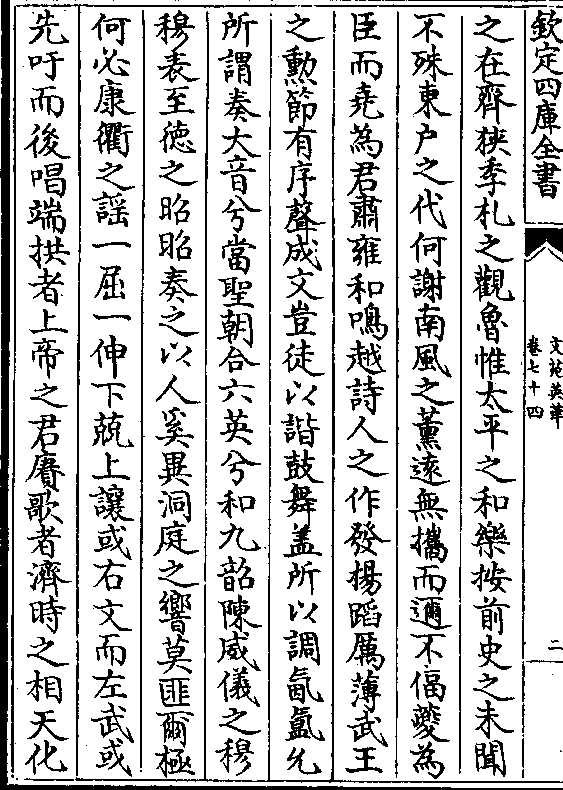 欽定四庫全書
文苑英華
卷七十四
二
之在齊狹季札之觀魯惟太平之和樂按前史之未聞
不殊東户之代何謝南風之薰遠無攜而邇不偪夔為
臣而堯為君肅雍和鳴越詩人之作發揚蹈厲薄武王
之勲節有序聲成文豈徒以諧鼓舞盖所以調氤氲允
所謂奏大音兮當聖朝合六英兮和九韶陳威儀之穆
穆表至徳之昭昭奏之以人奚異洞庭之響莫匪爾極
何必康衢之謡一屈一伸下兢上讓或右文而左武或
先吁而後唱端拱者上帝之君賡歌者濟時之相天化